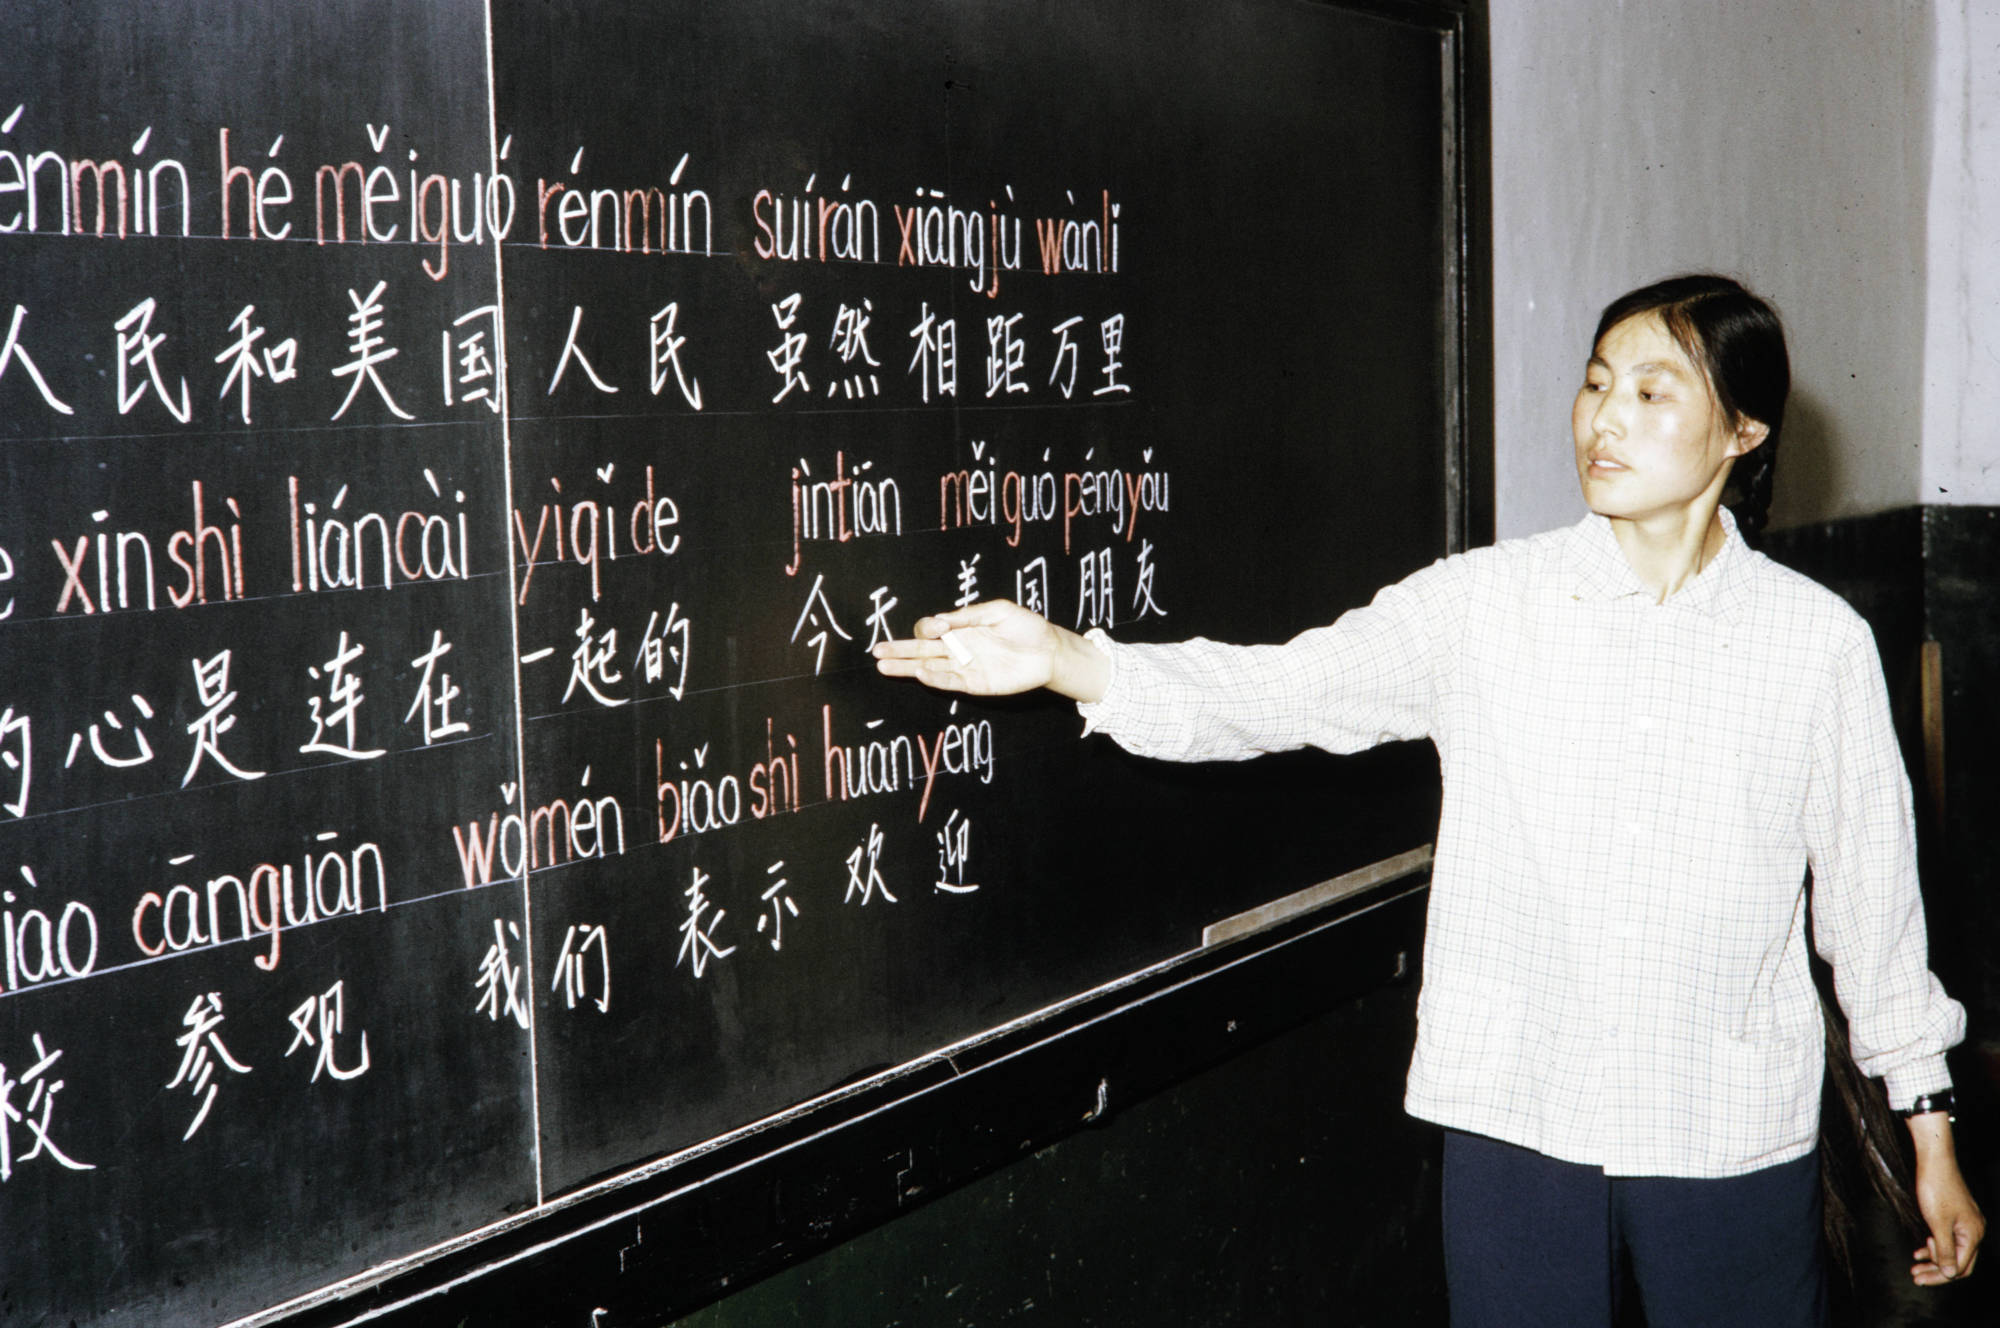 énmín hé měiguó rénmín suírán xiāngjù wànlǐ
人民和美国人民 虽然相距万里
xīn shì liáncài yìqǐ de jīntiān měiguó péngyǒu
的心是连在一起的 今天美国朋友
iào cānguān wǒmén biǎoshì huānyéng
校 参观 我们 表示欢迎